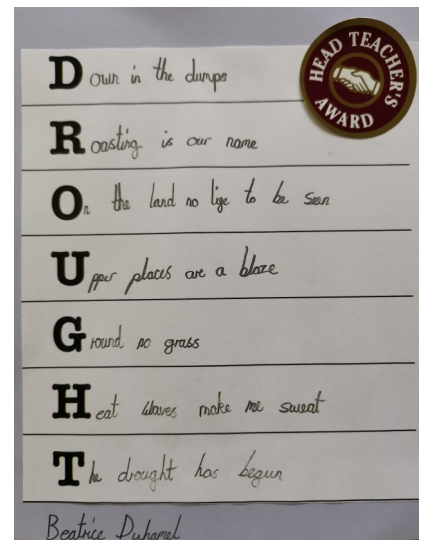 HEAD TEACHER'S AWARD
Down in the dumps
Roasting is our name
On the land no lige to be seen
Upper places are a blaze
Ground no grass
Heat waves make me sweat
The drought has begun
Beatrice Duhamel